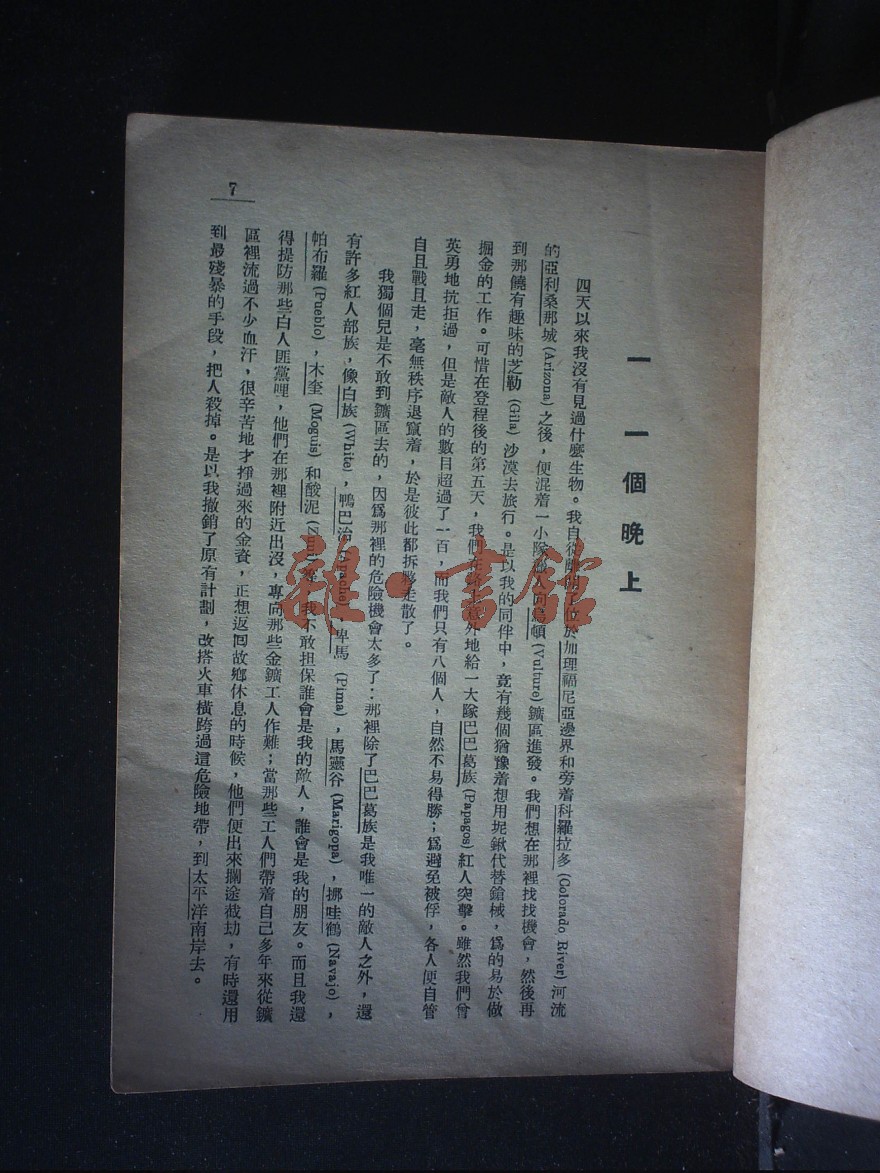 一 一個晚上
四天以來我沒有見過什麼生物。我自從離開了位於加理福尼亞邊界和旁着科羅拉多 (Colorado River) 河流
的亞利桑那城 (Arizona) 之後，便混着一小隊獵人向烏頓 (Vulture) 鑛區進發。我們想在那裡找找機會，然後再
到那饒有趣味的芝勒 (Gila) 沙漠去旅行。是以我的同伴中，竟有幾個猶豫着想用坭鍬代替鎗械，爲的易於做
掘金的工作。可惜在登程後的第五天，我們在意外地給一大隊巴巴葛族 (Papagos) 紅人突擊。雖然我們曾
英勇地抗拒過，但是敵人的數目超過了一百，而我們只有八個人，自然不易得勝；爲避免被俘，各人便自管
自且戰且走，毫無秩序退竄着，於是彼此都拆夥走散了。
我獨個兒是不敢到鑛區去的，因爲那裡的危險機會太多了：那裡除了巴巴葛族是我唯一的敵人之外，還
有許多紅人部族，像白族 (White)，鴨巴治 (Apache)，卑馬 (Pima)，馬靈谷 (Marigopa)，挪哇鶴 (Navajo)，
帕布羅 (Pueblo)，木奎 (Moguis) 和酸泥 (Zuni) 等，我不敢担保誰會是我的敵人，誰會是我的朋友。而且我還
得提防那些白人匪黨哩，他們在那裡附近出沒，專向那些金鑛工人作難；當那些工人們帶着自己多年來從鑛
區裡流過不少血汗，很辛苦地才掙過來的金資，正想返回故鄉休息的時候，他們便出來攔途截劫，有時還用
到最殘暴的手段，把人殺掉。是以我撤銷了原有計劃，改搭火車橫跨過這危險地帶，到太平洋南岸去。
7
雜·書館